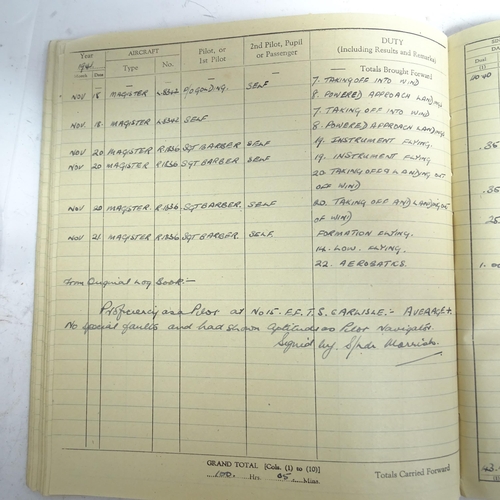 Year AIRCRAFT Pilot, or 2nd Pilot, Pupil DUTY
1941 1st Pilot or Passenger (Including Results and Remarks)
Month Date Type No.
— — — — — Totals Brought Forward
NOV 18 MAGISTER P/O GONDING. SELF 7. TAKING OFF INTO WIND
8. POWERED APPROACH LANDING
7. TAKING OFF INTO WIND
NOV 18 MAGISTER SELF 8. POWERED APPROACH LANDING
NOV 20 MAGISTER R1836 SGT BARBER SELF 19. INSTRUMENT FLYING.
NOV 20 MAGISTER R1836 SGT. BARBER SELF 19. INSTRUMENT FLYING
20. TAKING OFF & LANDING OUT
OFF WIND
NOV 20 MAGISTER R1836 SGT BARBER. SELF 20. TAKING OFF AND LANDING OUT
OF WIND
NOV 21 MAGISTER R1836 SGT BARBER SELF. FORMATION FLYING.
14. LOW. FLYING.
22. AEROBATICS.
From Original Log Book:-
Proficiency as a Pilot at No 15. E.F.T.S. CARLISLE:- AVERAGE+.
No special faults and had shown aptitude as Pilot Navigator.
Signed by. S/Ldr
GRAND TOTAL [Cols. (1) to (10)]
100 Hrs. 05 Mins. Totals Carried Forward
Dual
(1)